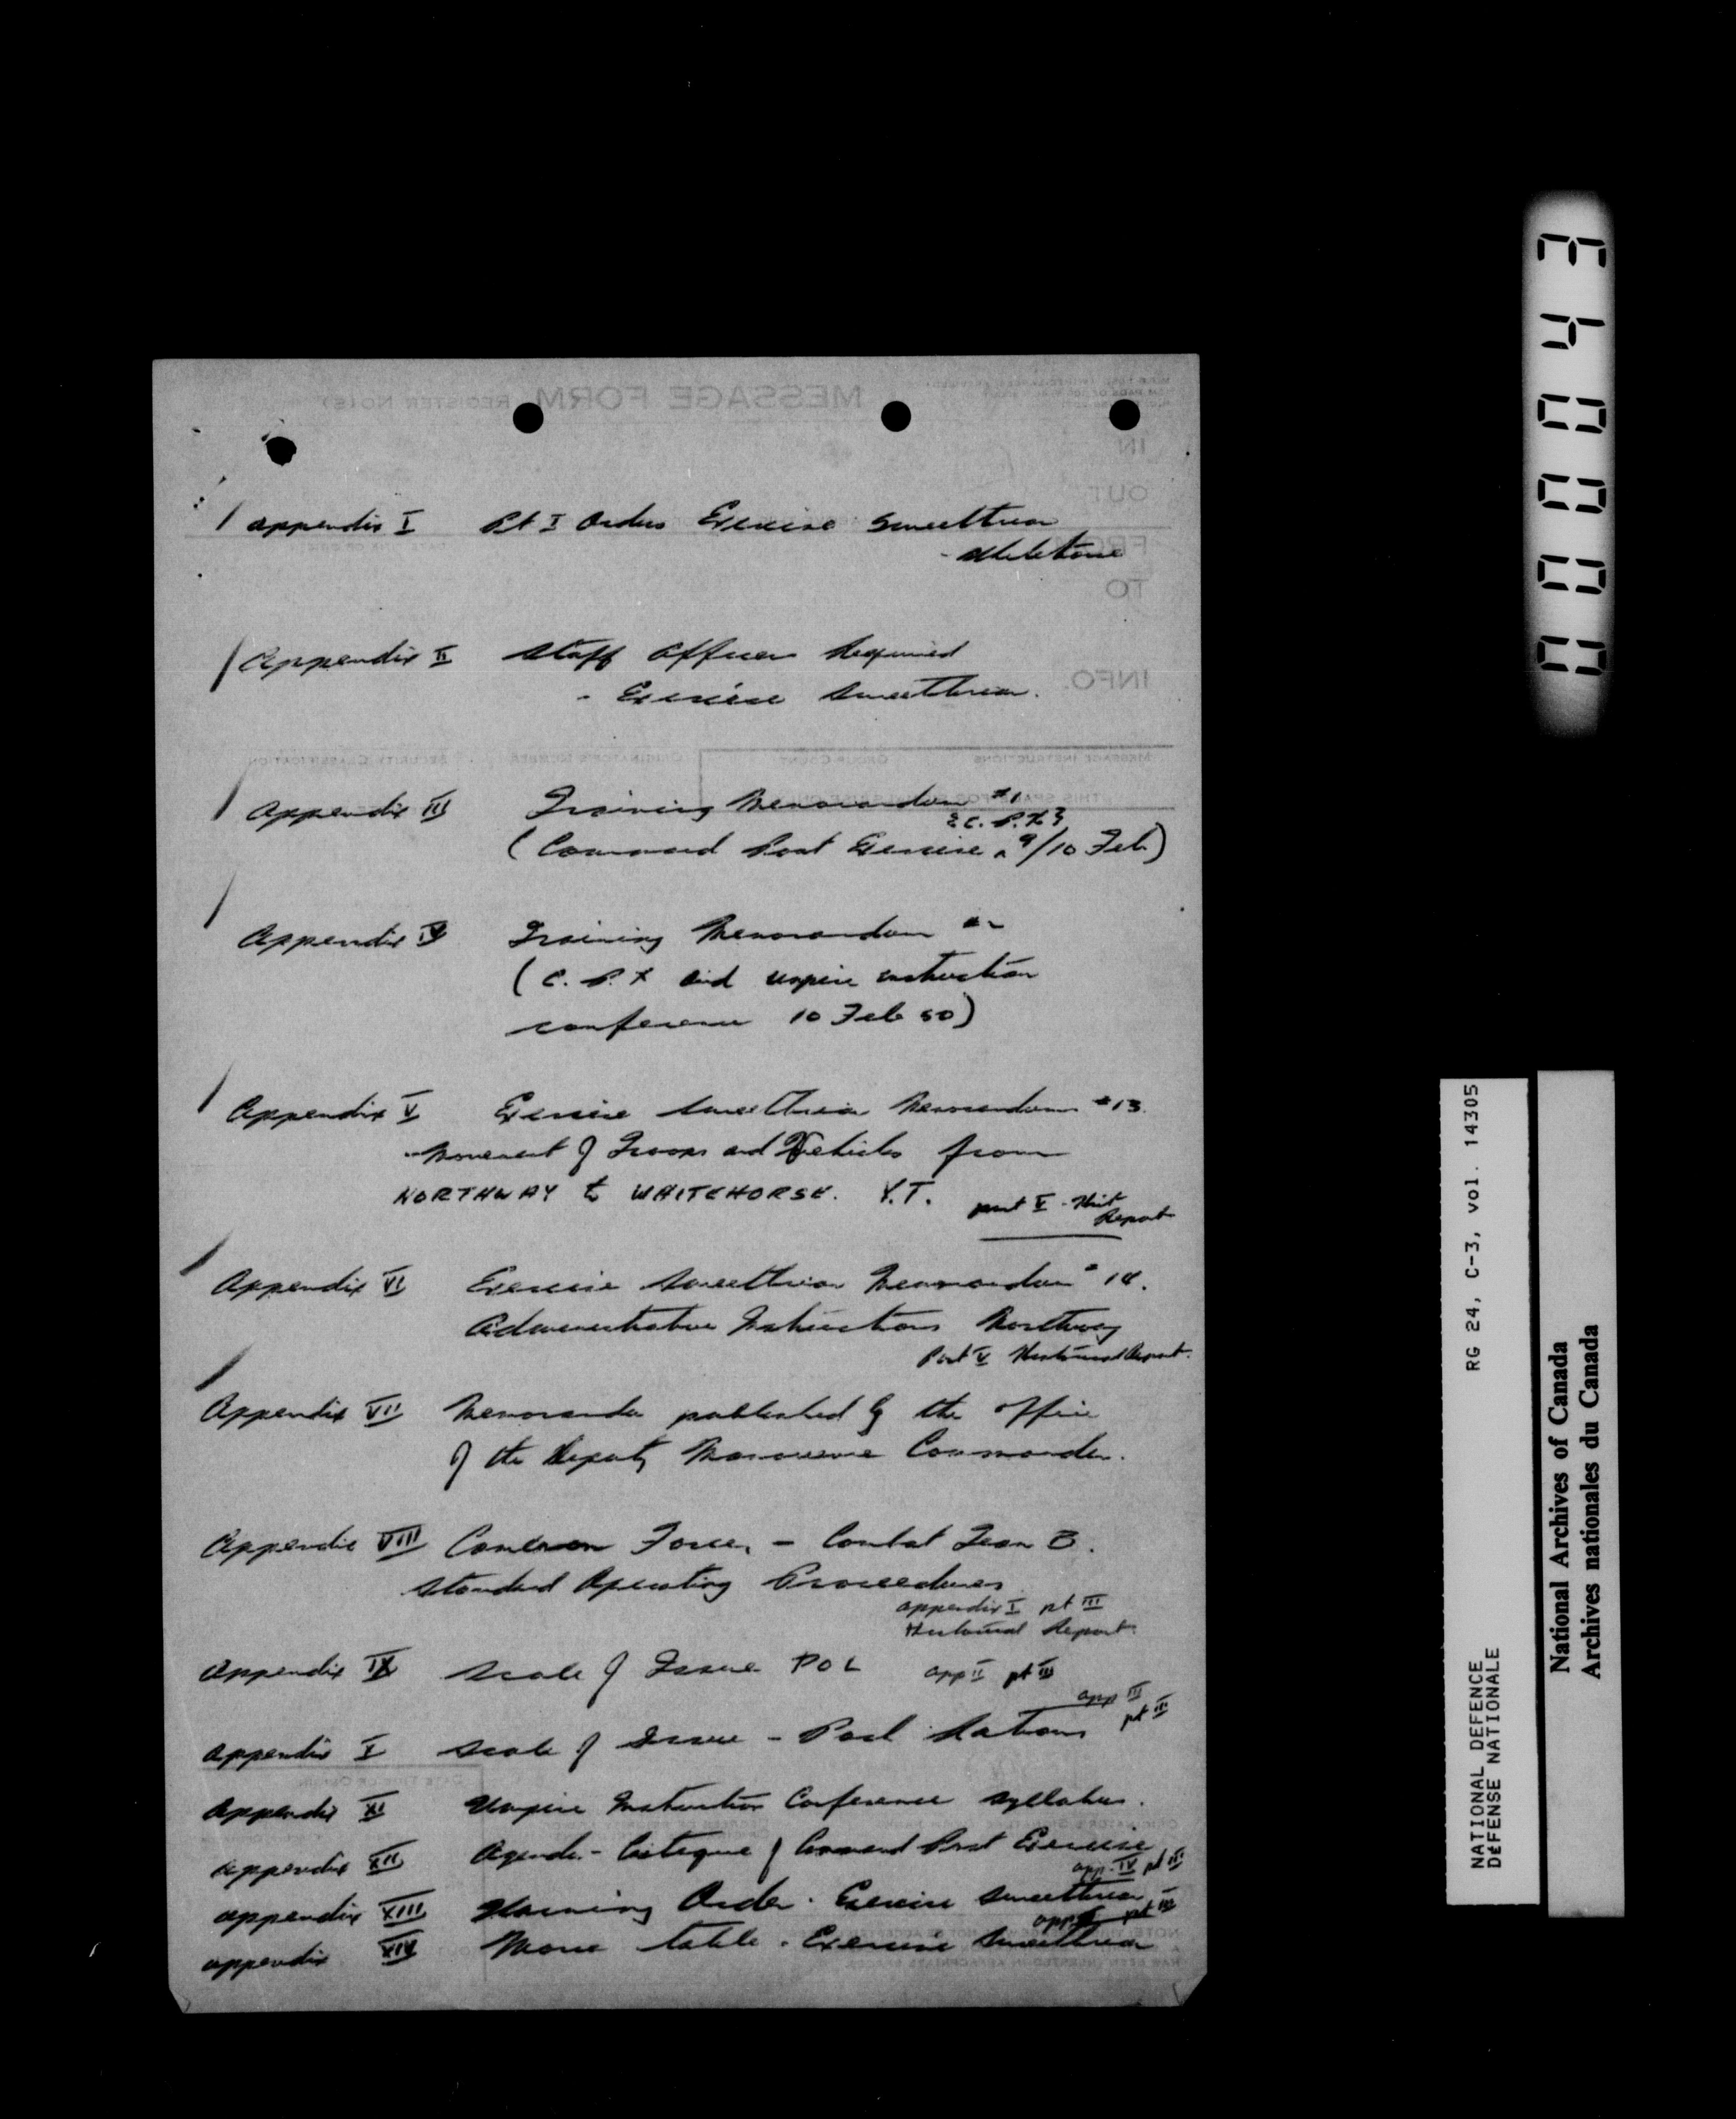 Appendix I Pt I Orders Exercise Sweetbriar
Appendix II Staff Officers Required
- Exercise Sweetbriar.
Appendix III Training Memorandum #1
{C.P.X}
(Command Post Exercise 9/10 Feb)
Appendix IV Training Memorandum #2
(C.P.X and umpire instruction
conference 10 Feb 50)
Appendix V Exercise Sweetbriar Memorandum #13.
- Movement of Troops and Vehicles from
NORTHWAY to WHITEHORSE. Y.T.
part V - Hist
Report
Appendix VI Exercise Sweetbriar Memorandum # 14.
Administrative Instructions Northway
Part V Historical Report.
Appendix VII Memoranda published by the office
of the Deputy Manoeuvre Commander.
Appendix VIII Force, - Combat Team B.
Standard Operating Proceedures
appendix I pt III
Historical Report.
Appendix IX Scale of Issue POL app II pt III
app III
pt III
Appendix X Scale of Issue - Pack Rations
Appendix XI Umpire Instruction Conference Syllabus.
Appendix XII Agenda - Critique of Command Post Exercise
app. IV pt III
appendix XIII Warning Order - Exercise Sweetbriar
app pt III
appendix XIV Move table - Exercise Sweetbriar
MESSAGE FORM REGISTER NO(S)
IN
OUT
FROM
TO
INFO.
MESSAGE INSTRUCTIONS GROUP COUNT ORIGINATOR'S NUMBER SECURITY CLASSIFICATION
NATIONAL DEFENCE RG 24, C-3, vol. 14305
DÉFENSE NATIONALE
National Archives of Canada
Archives nationales du Canada